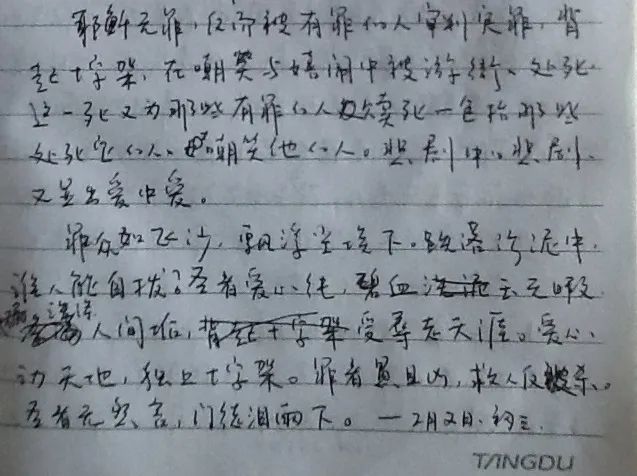 耶稣无罪，反而被有罪的人审判灾罪，背
起十字架，在嘲笑与嬉闹中被游街、处死。
这一死又为那些有罪的人　死—包括那些
处死他的人、嘲笑他的人。悲剧中的悲剧，
又显出爱中爱。
罪众如飞沙，飘浮尘埃下。跌落污泥中，
谁人能自拔？圣者爱心纯，碧血　无暇
人间　，背起十字架受辱走天涯。爱心
动天地，独立十字架。罪者愚且凶，救人反被杀。
圣者无怨言，门徒泪雨下。—2月又日.初三.
TANGDU